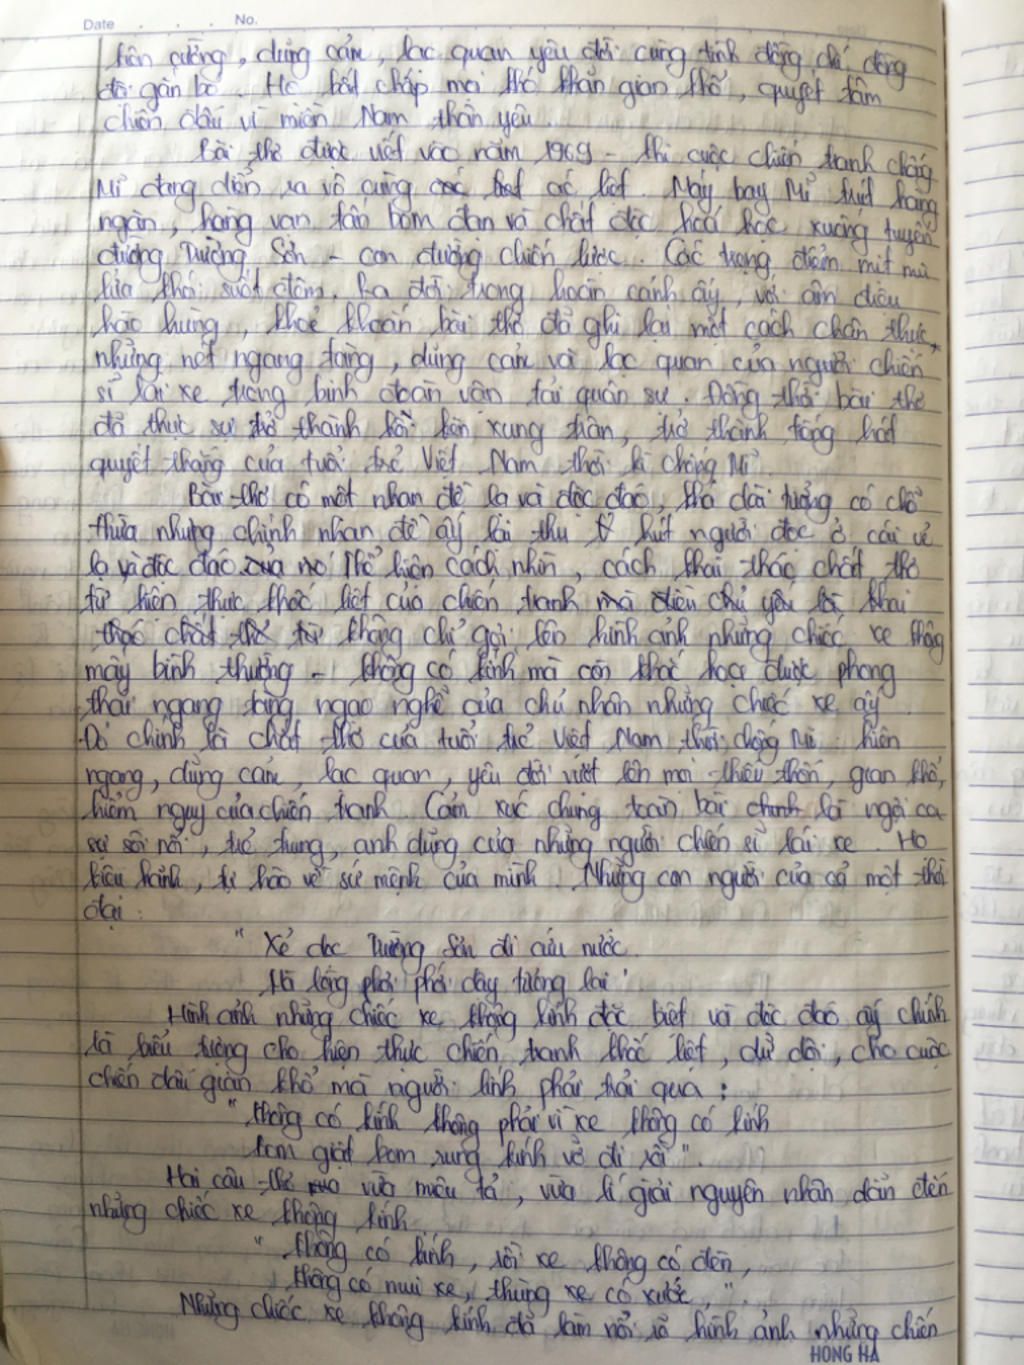 Date . . . No.
kiên cường, dũng cảm, lạc quan yêu đời cùng tình đồng chí, đồng
đội gắn bó. Họ bất chấp mọi khó khăn gian khổ, quyết tâm
chiến đấu vì miền Nam thân yêu.
Bài thơ được viết vào năm 1969 - khi cuộc chiến tranh chống
Mĩ đang diễn ra vô cùng ác liệt. Máy bay Mĩ trút hàng
ngàn, hàng vạn tấn bom đạn và chất độc hoá học xuống tuyến
đường Trường Sơn - con đường chiến lược. Các trọng điểm mịt mù
lửa khói suốt đêm. Ra đời trong hoàn cảnh ấy, với âm điệu
hào hùng, khoẻ khoắn bài thơ đã ghi lại một cách chân thực
những nét ngang tàng, dũng cảm và lạc quan của người chiến
sĩ lái xe trong binh đoàn vận tải quân sự. Đồng thời bài thơ
đã thực sự trở thành hồi kèn xung trận, trở thành tiếng hát
quyết thắng của tuổi trẻ Việt Nam thời kì chống Mĩ.
Bài thơ có một nhan đề lạ và độc đáo, khá dài tưởng có chỗ
thừa nhưng chính nhan đề ấy lại thu hút người đọc ở cái vẻ
lạ và độc đáo của nó. Thể hiện cách nhìn, cách khai thác chất thơ
từ hiện thực khốc liệt của chiến tranh mà điều chủ yếu là khai
thác chất thơ từ không chỉ gợi lên hình ảnh những chiếc xe không
mấy bình thường - không có kính mà còn khắc hoạ được phong
thái ngang tàng ngạo nghễ của chủ nhân những chiếc xe ấy.
Đó chính là chất thơ của tuổi trẻ Việt Nam thời chống Mĩ hiên
ngang, dũng cảm, lạc quan, yêu đời vượt lên mọi thiếu thốn, gian khổ,
hiểm nguy của chiến tranh. Cảm xúc chung toàn bài chính là ngợi ca
sự sôi nổi, trẻ trung, anh dũng của những người chiến sĩ lái xe. Họ
kiêu hãnh, tự hào về sứ mệnh của mình. Những con người của cả một thời
đại:
" Xẻ dọc Trường Sơn đi cứu nước.
Mà lòng phơi phới dậy tương lai"
Hình ảnh những chiếc xe không kính đặc biệt và độc đáo ấy chính
là biểu tượng cho hiện thực chiến tranh khốc liệt, dữ dội, cho cuộc
chiến đấu gian khổ mà người lính phải trải qua:
" Không có kính không phải vì xe không có kính
Bom giật bom rung kính vỡ đi rồi".
Hai câu thơ vừa miêu tả, vừa lí giải nguyên nhân dẫn đến
những chiếc xe không kính.
" Không có kính, rồi xe không có đèn,
Không có mui xe, thùng xe có xước, ".
Những chiếc xe không kính đã làm nổi rõ hình ảnh những chiến
HONG HA